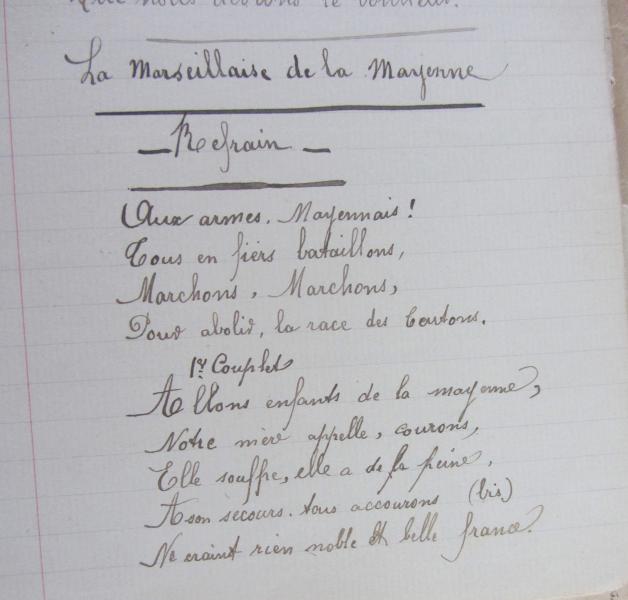 Que nous devons le bonheur.
La Marseillaise de la Mayenne
— Refrain —
Aux armes. Mayennais !
Tous en fiers bataillons,
Marchons, Marchons,
Pour abolir, la race des teutons.
1er Couplet
Allons enfants de la mayenne,
Notre mère appelle, courons,
Elle souffre, elle a de la peine,
A son secours. tous accourons (bis)
Ne craint rien noble et belle france.